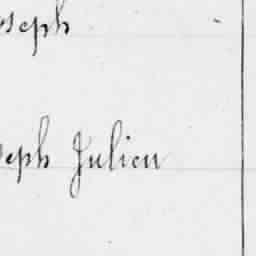 oseph
seph Julien